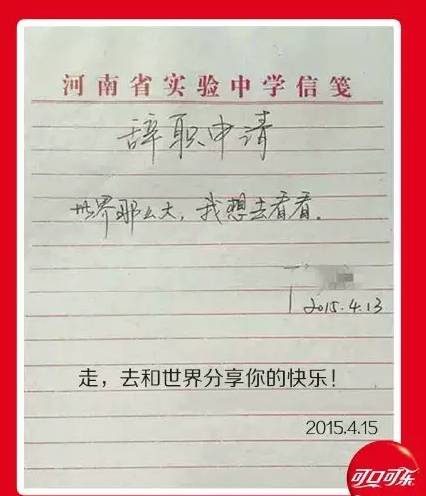 河南省实验中学信笺
辞职申请
世界那么大，我想去看看．
2015.4.13
走，去和世界分享你的快乐！
2015.4.15
可口可乐